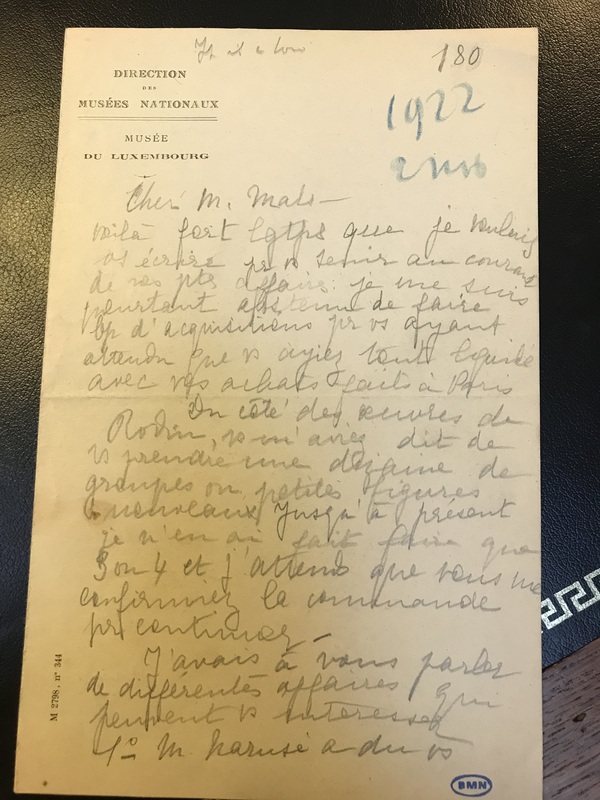 180
DIRECTION
DES
MUSÉES NATIONAUX
MUSÉE
DU LUXEMBOURG
1922
Cher M. Mats—
voilà fort lgtps que je voulais
vs écrire pr vs tenir au courant
de vos pts affaires. je me suis
pourtant abstenu de faire
bp d'acquisitions pr vs ayant
attendu que vs ayiez tout liquidé
avec vos achats faits à Paris
Du côté des œuvres de
Rodin, vs m'aviez dit de
vs prendre une dizaine de
groupes ou petites figures
nouveaux. Jusqu'à présent
je n'en ai fait faire que
3 ou 4 et j'attends que vous me
confirmiez la commande
pr continuer—
J'avais à vous parler
de différentes affaires qui
peuvent vs intéresser
1º M. Narusé a du vs
M 2798, nº 344
BMN